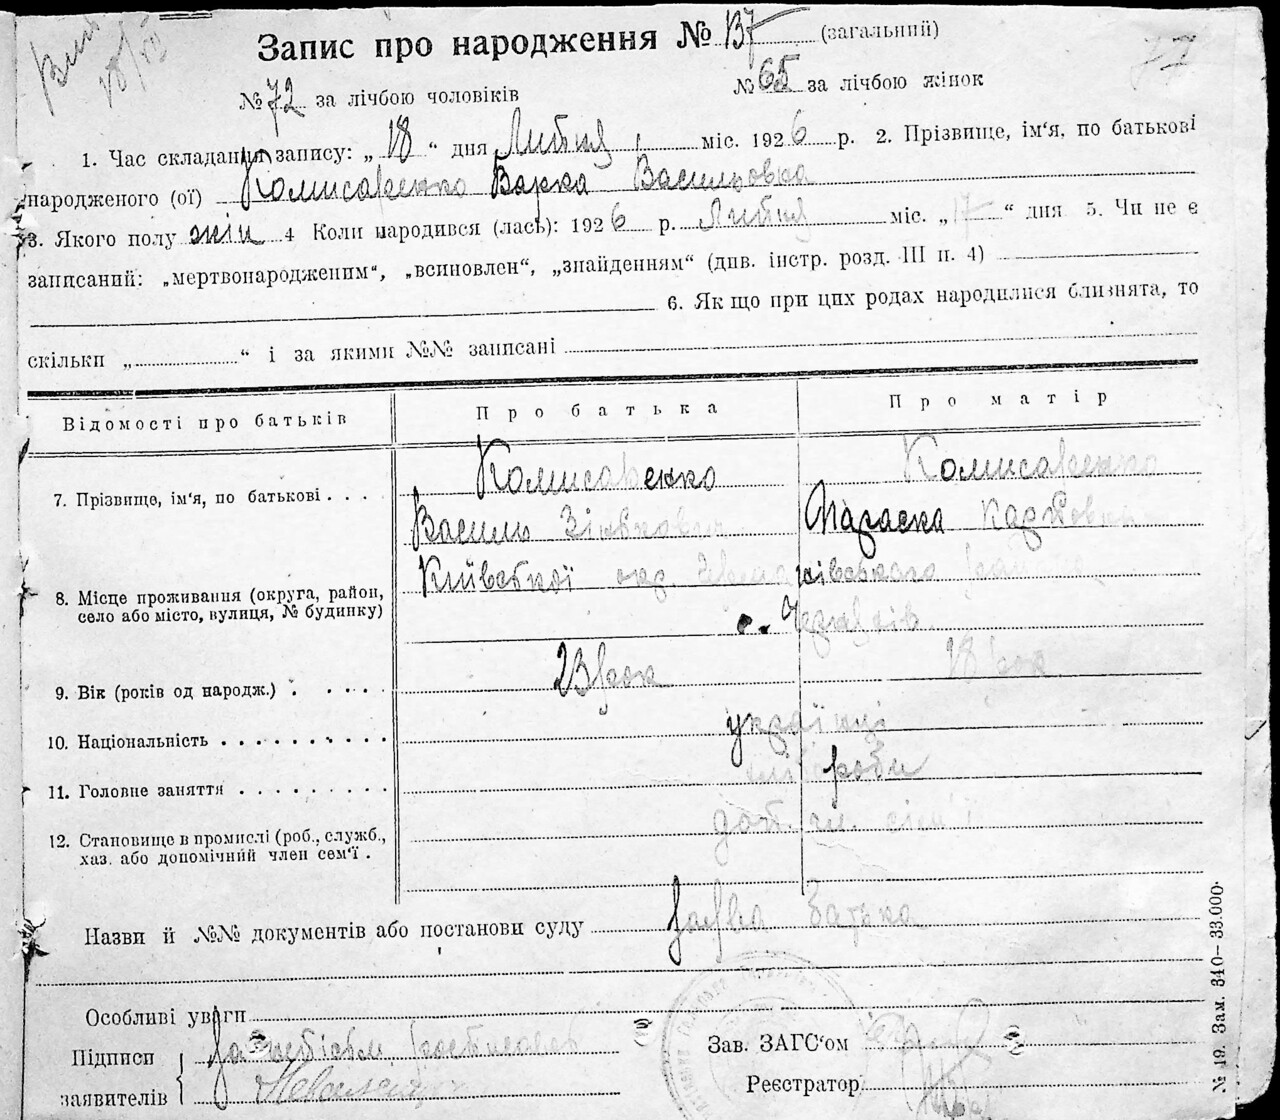 77
Запис про народження № 137 (загальний)
№ 72 за лічбою чоловіків № 65 за лічбою жінок
1. Час складання запису: „18“ дня Липня міс. 1926 р. 2. Прізвище, ім‘я, по батькові
народженого (ої) Комисаренко Варка Васильовна
3. Якого полу жін 4 Коли народився (лась): 1926 р. Липня міс. „17“ дня 5. Чи не є
записаний: „мертвонародженим“, „всиновлен“, „знайденням“ (див. інстр. розд. III п. 4)
6. Як що при цих родах народилися близнята, то
скільки „ “ і за якими №№ записані
Відомості про батьків Про батька Про матір
7. Прізвище, ім‘я, по батькові Комисаренко Комисаренко
Василь Параска Карповна
8. Місце проживання (округа, район, Київської окр.
село або місто, вулиця, № будинку) с.
9. Вік (років од народж.) 23 рок 18 рок
10. Національність українці
11. Головне заняття хлібороби
12. Становище в промислі (роб., служб., доп. чл. сім'ї
хаз. або допомічний член сем‘ї
Назви й №№ документів або постанови суду Заява батька
Особливі уваги
Підписи
заявителів
Зав. ЗАГС‘ом
Реєстратор
№ 19. Зам. 340—33.000.